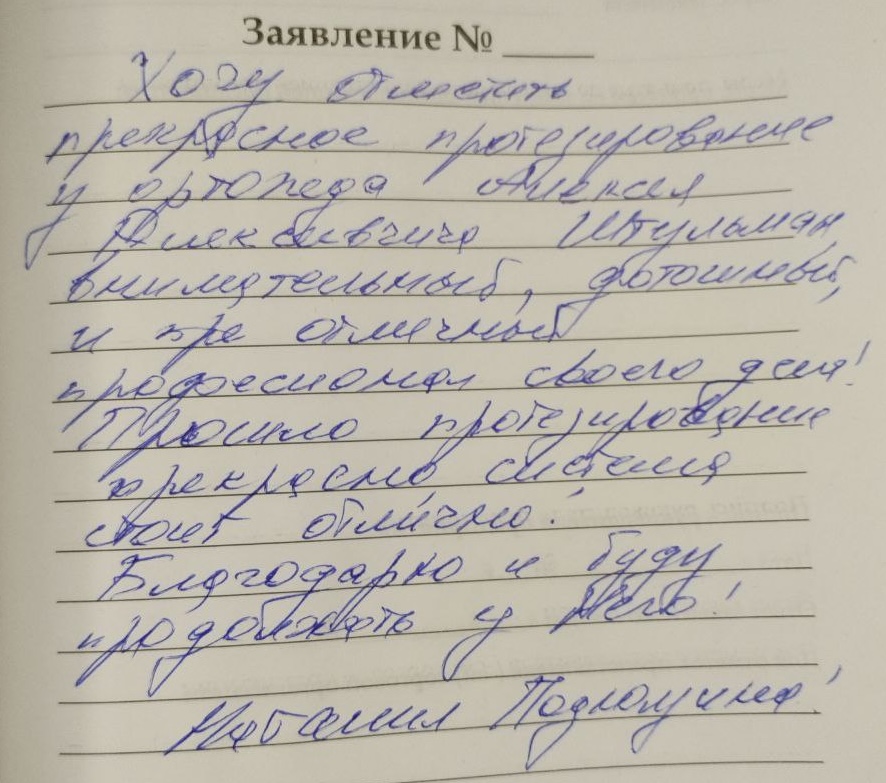 Заявление №
Хочу отметить
прекрасное протезирование
у ортопеда Алексея
Алексеевича Штульман,
внимательный,
и пре отличный
професионал своего дела!
Прошло протезирование
прекрасно система
стоит отлично!
Благодарю и буду
продолжать у него!